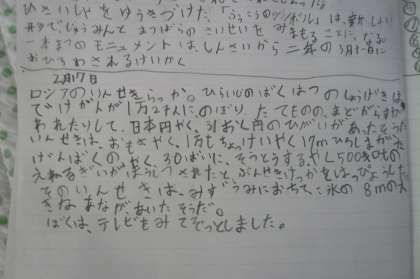 ひさいしゃをゆうきづけた「ふっこうのシンボル」は、新しい
形でじゅうみんとまつばらのさいせいをみまもることになる
一本まつのモニュメントは、しんさいから二年の3月十一日に
おひろめされるけいかく
2月17日
ロシアのいんせきらっか。ひらいじのばくはつのしょうげきは
でけが人が1万2千人にのぼり、たてものの、まどがらすが
われたりして、日本円やく、31おく円のひがいがあったそうだ
いんせきは、おもさやく、1万しょっけいやく17mひろしまがた
げんばくのやく、30ばいに、そうとうするやく500キロtの
えねるぎいがほうしつされたと、ぶんせきけっかをはっぴょうした
そのいんせきは、みずうみにおちて、氷の8mの大
きなあながあいたそうだ。
ぼくは、テレビをみてぞっとしました。